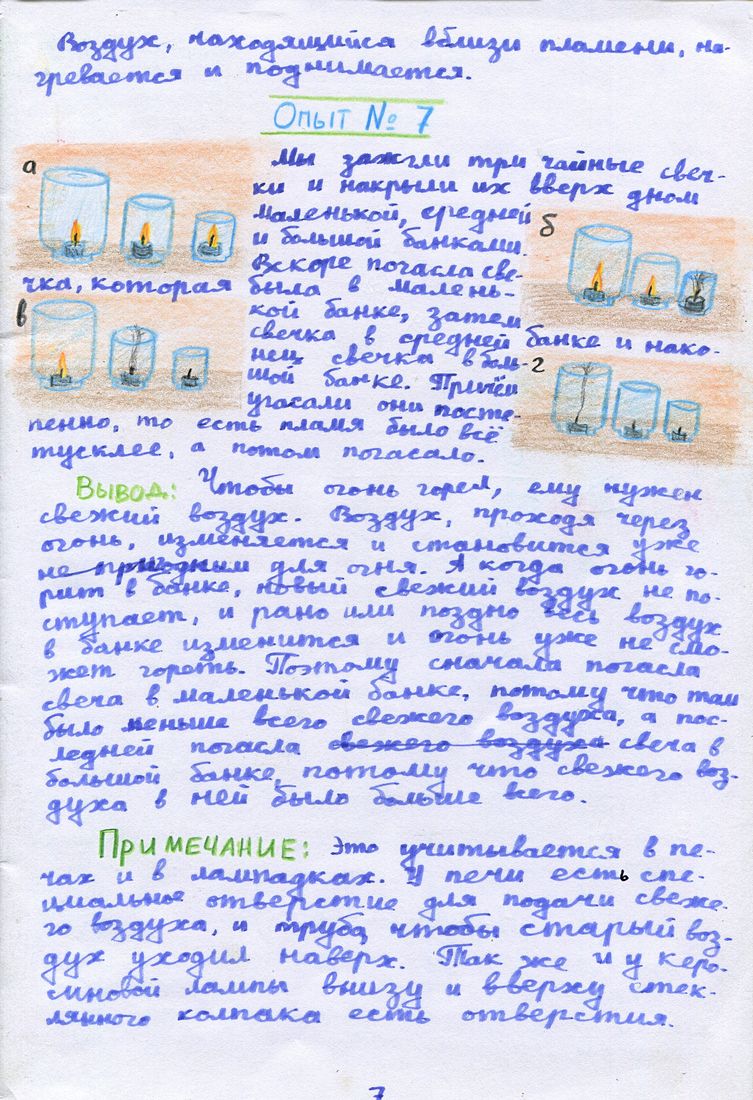 Воздух, находящийся вблизи пламени, на-
гревается и поднимается.
Опыт № 7
а
Мы зажгли три чайные свеч-
ки и накрыли их вверх дном
маленькой, средней
и большой банками.
б
Вскоре погасла све-
чка, которая была в малень-
в
кой банке, затем
свечка в средней банке и нако-
нец свечка в боль-
шой банке. Причём
г
угасали они посте-
пенно, то есть пламя было всё
тусклее, а потом погасало.
Вывод: Чтобы огонь горел, ему нужен
свежий воздух. Воздух, проходя через
огонь, изменяется и становится уже
не пригодным для огня. А когда огонь го-
рит в банке, новый свежий воздух не по-
ступает, и рано или поздно весь воздух
в банке изменится и огонь уже не смо-
жет гореть. Поэтому сначала погасла
свеча в маленькой банке, потому что там
было меньше всего свежего воздуха, а пос-
ледней погасла свежего воздуха свеча в
большой банке, потому что свежего воз-
духа в ней было больше всего.
Примечание: Это учитывается в пе-
чах и в лампадках. У печи есть спе-
циальное отверстие для подачи свеже-
го воздуха, и труба, чтобы старый воз-
дух уходил наверх. Так же и у керо-
синовой лампы внизу и вверху стек-
лянного колпака есть отверстия.
7